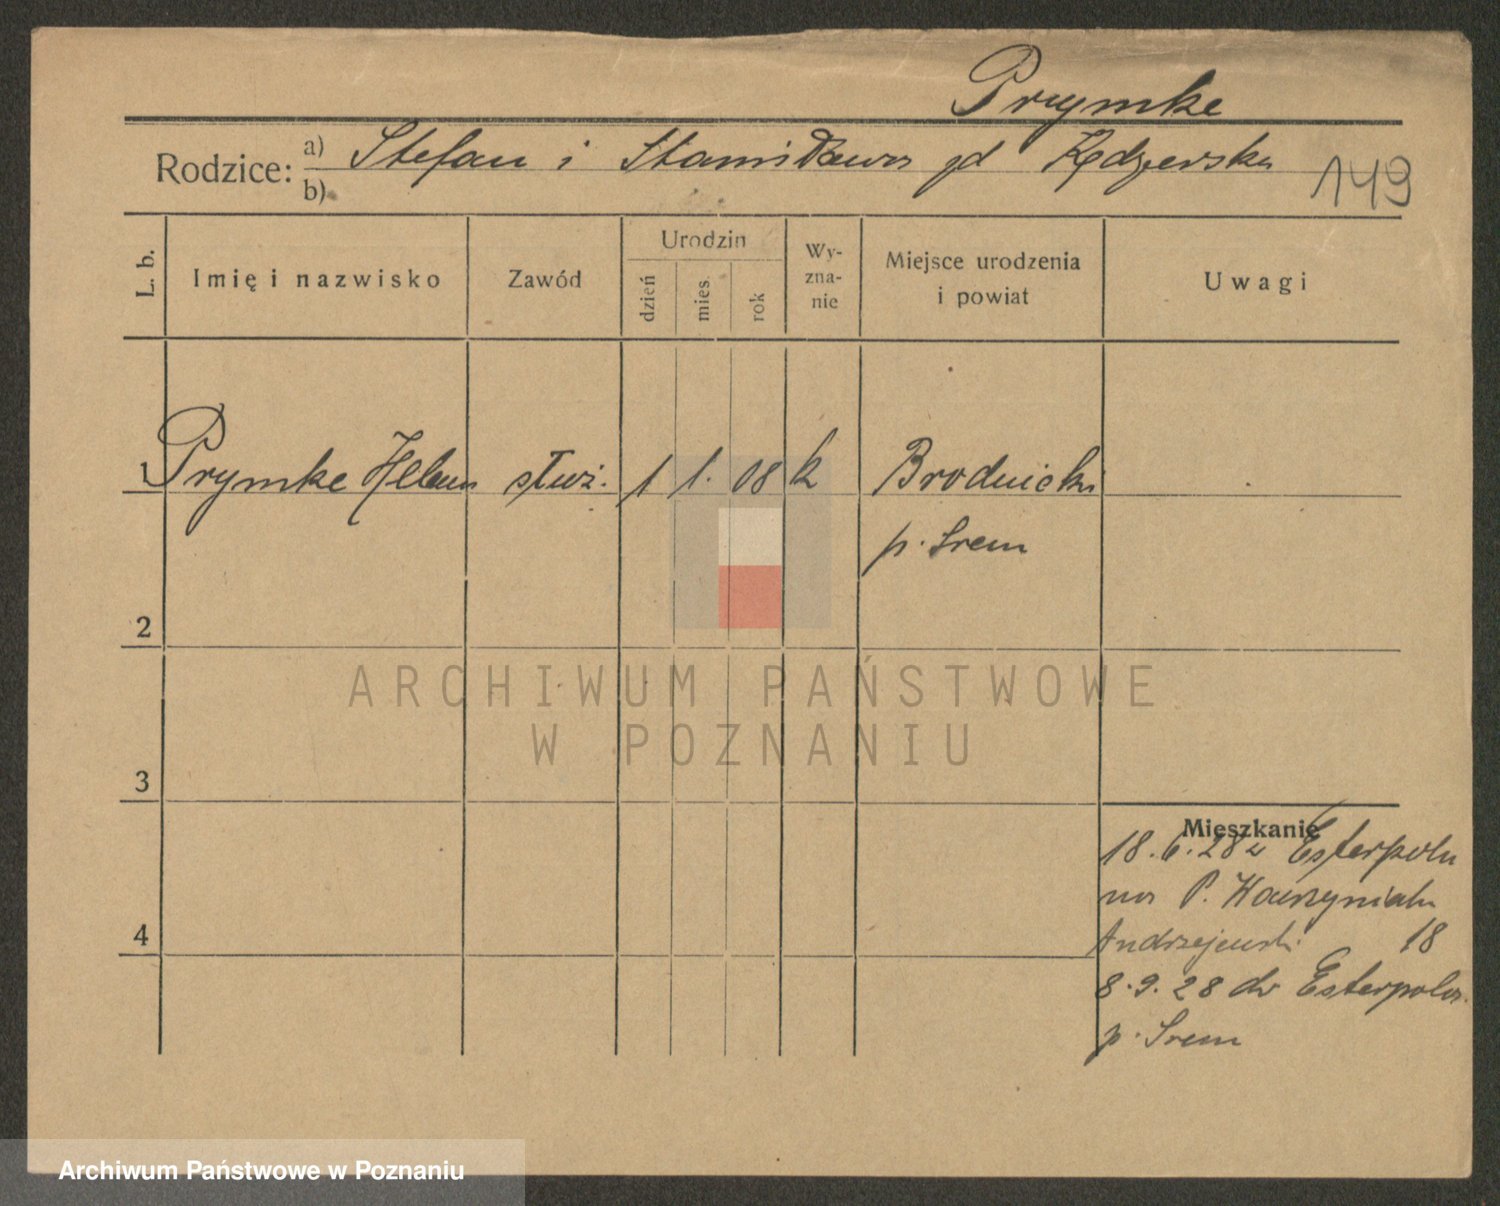 Prymke
Rodzice: a) Stefan i Stanisława zd
b)
149
L. b.
Imię i nazwisko
Zawód
Urodzin
dzień
mies.
rok
Wy-
zna-
nie
Miejsce urodzenia
i powiat
Uwagi
1 Prymke Helena służ. 1 1. 08 k Brodniczki
p. Śrem
2
3
4
Mieszkanie
18.6.28 z Esterpola
na P. Wawrzyniaka
Andrzejewski 18
8.9.28 do Esterpola
p. Śrem
ARCHIWUM PAŃSTWOWE
W POZNANIU
Archiwum Państwowe w Poznaniu